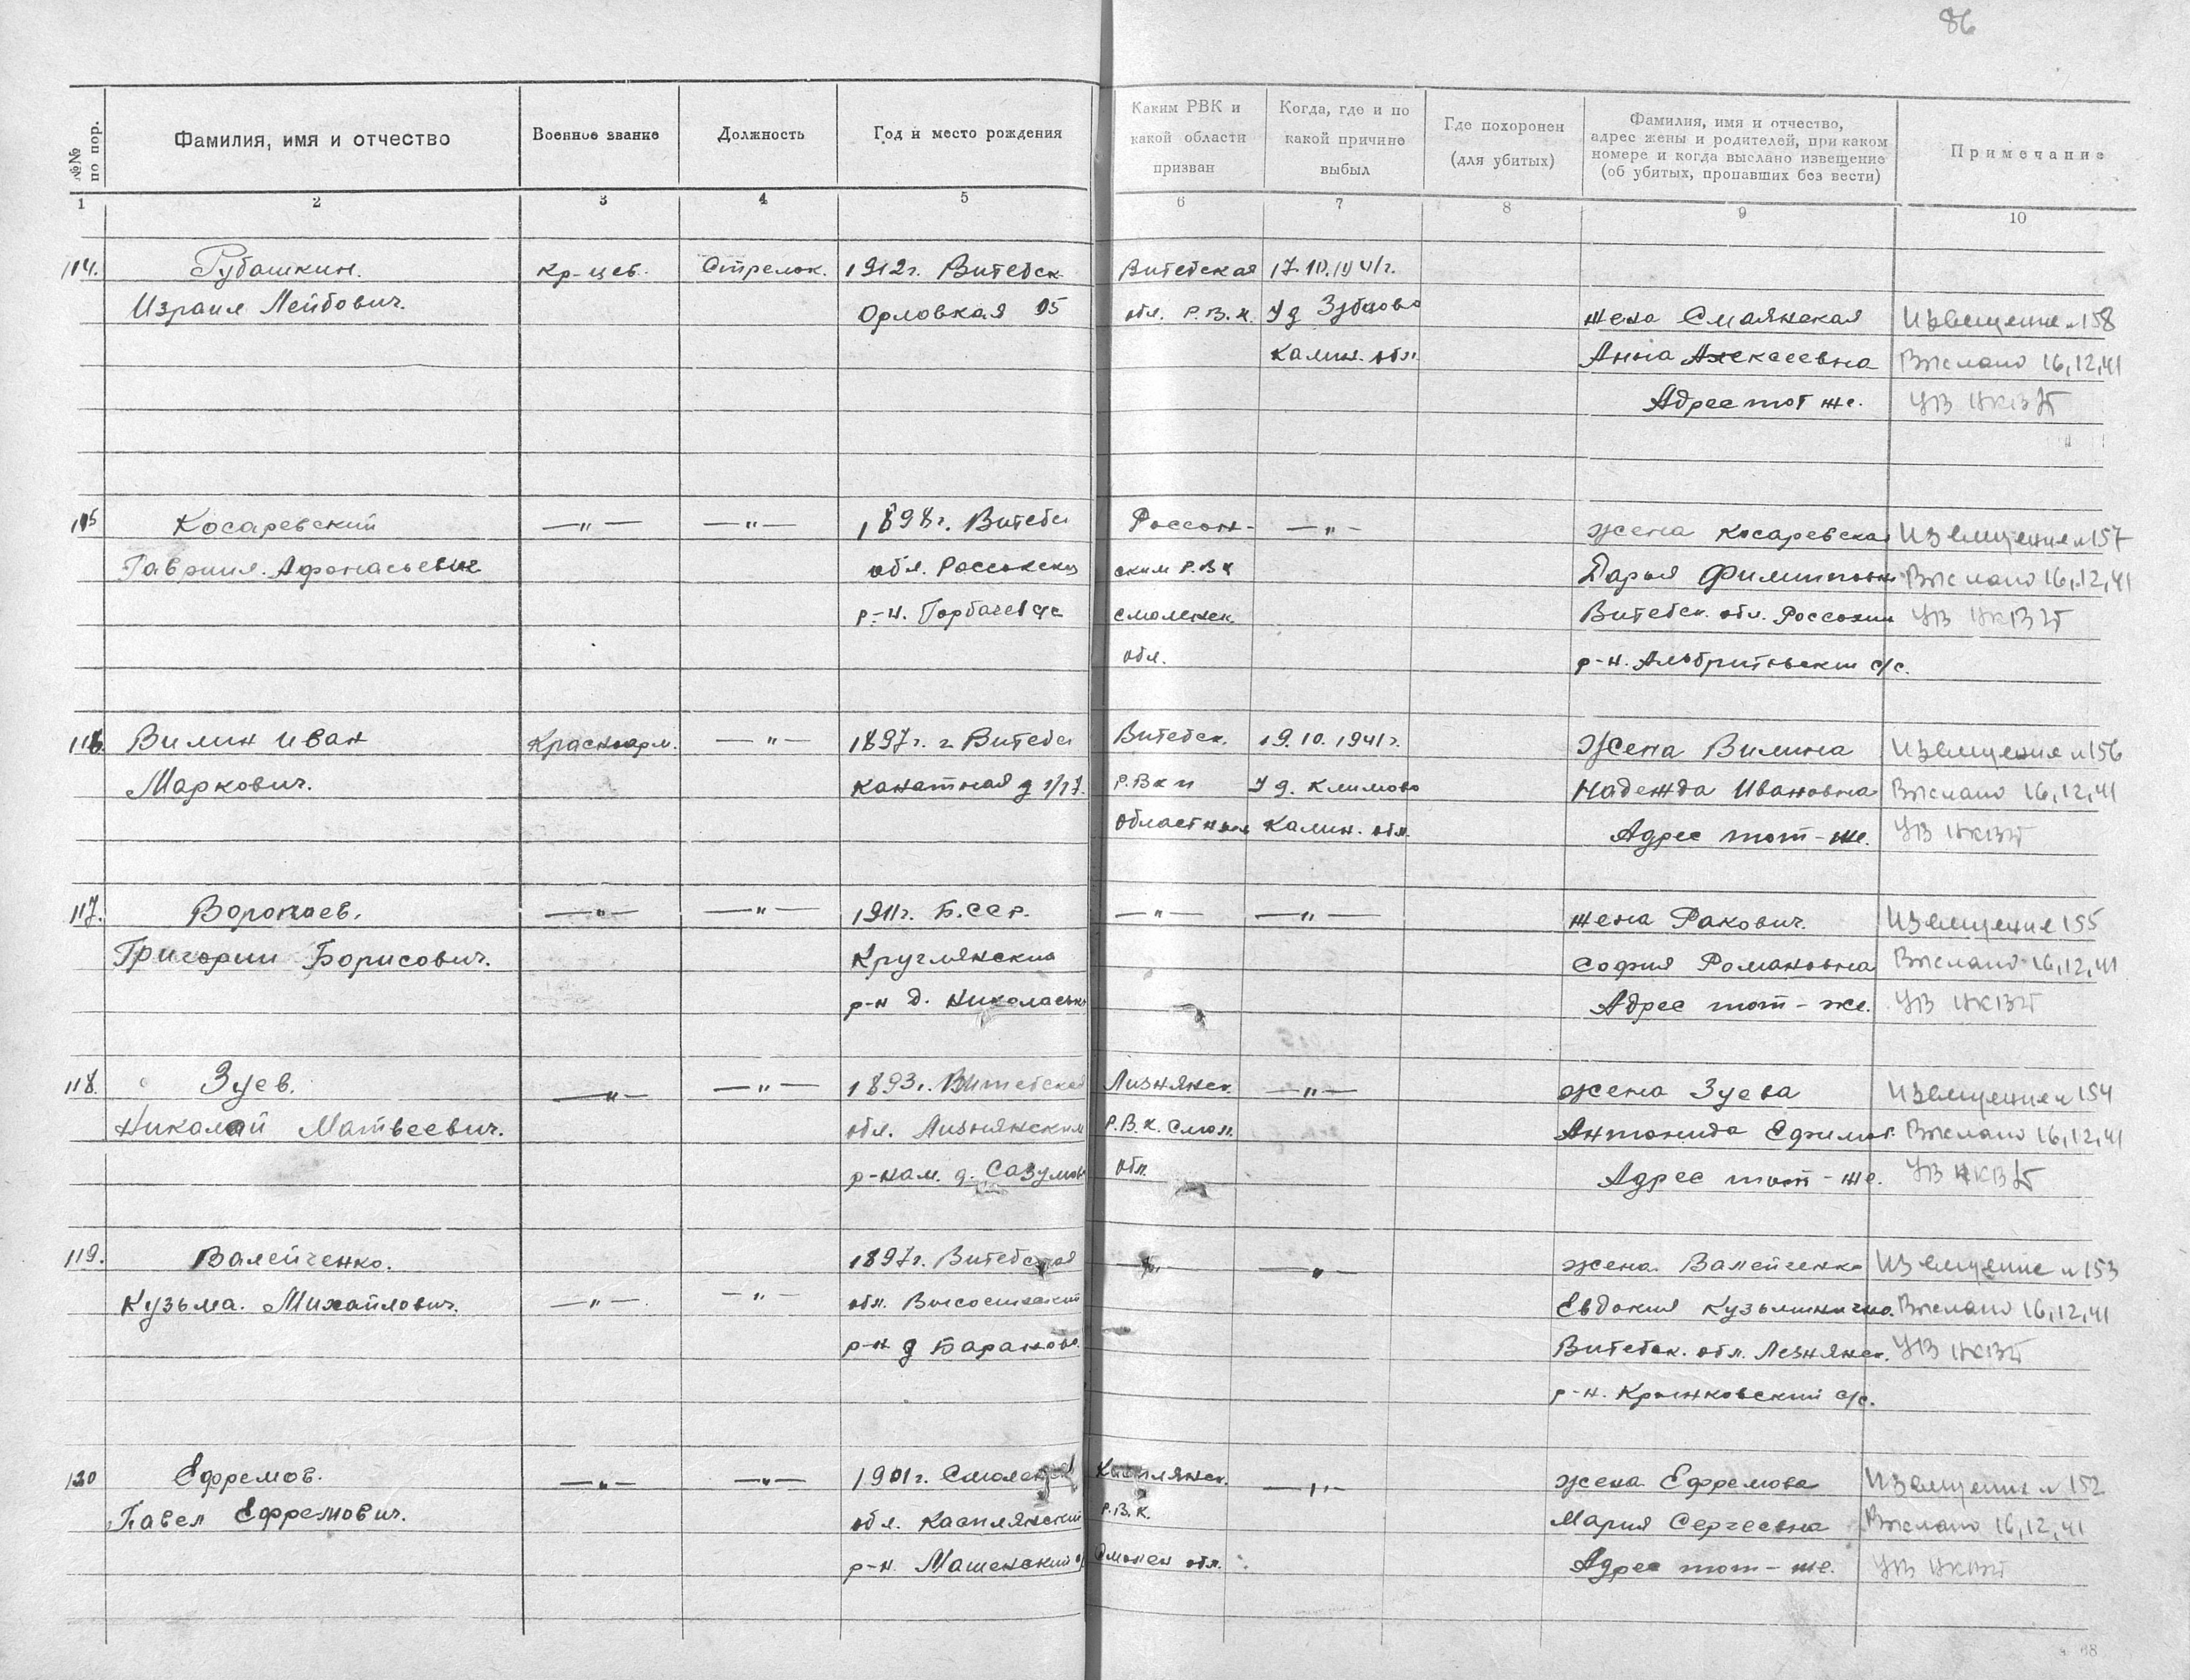 86
№№ по пор.
Фамилия, имя и отчество
Военное звание
Должность
Год и место рождения
Каким РВК и какой области призван
Когда, где и по какой причине выбыл
Где похоронен (для убитых)
Фамилия, имя и отчество, адрес жены и родителей, при каком номере и когда выслано извещение (об убитых, пропавших без вести)
Примечание
1 2 3 4 5 6 7 8 9 10
114. Рубашкин. Кр-цев. Стрелок. 1912г. Витебск Витебская 17.10.1941г.
Израил Лейбович. Орловская 05 обл. Р.В.К. У д Зубцово жена Смаянская Извещение №158
Калин. обл. Анна Алексеевна Выслано 16,12,41
Адрес тот же. УВ НКВД
115 Косаревский —"— —"— 1898г. Витебск Россон- —"— жена Косаревская Извещение №157
Гавриил. Афонасьевич обл. Россонский ским Р.В.К Дарья Филиповн Выслано 16,12,41
р-н. Горбачев с/с смоленск. Витебск. обл. Россонский УВ НКВД
обл. р-н. Альбритовский с/с.
116. Вилин Иван Красноарм. —"— 1897г. г. Витебск Витебск. 19.10.1941г. Жена Вилина Извещения №156
Маркович. Канатная д 1/17. Р.В.К и У д. Климово Надежда Ивановна Выслано 16,12,41
областным Калин. обл. Адрес тот-же. УВ НКВД
117. Воропаев. —"— —"— 1911г. Б.ССР. —"— —"— жена Ракович. Извещение 155
Григории Борисович. Круглянский София Романовна Выслано 16,12,41
р-н д. Адрес тот-же. УВ НКВД
118. Зуев. —"— —"— 1893г. Витебская Лизнянск. —"— жена Зуева Извещение №154
Николай Матвеевич. обл. Лизнянский Р.В.К. Смол. Антонида Ефимов. Выслано 16,12,41
р-нам. д. обл. Адрес тот-же. УВ НКВД
119. Валейченко. 1897г. Витебская —"— —"— жена. Валейченко Извещение №153
Кузьма. Михайлович. —"— —"— обл. Высочанский Евдокия Кузьминична. Выслано 16,12,41
р-н д Бараново. Витебск. обл. Лезнянск. УВ НКВД
р-н. Крынковский с/с.
120 Ефремов. —"— —"— 1901г. Смоленской Касплянск. —"— жена Ефремова Извещение №152
Павел Ефремович. обл. Касплянский Р.В.К. Мария Сергеевна Выслано 16,12,41
р-н Машенский с/ Смолен обл. Адрес тот-же. УВ НКВД